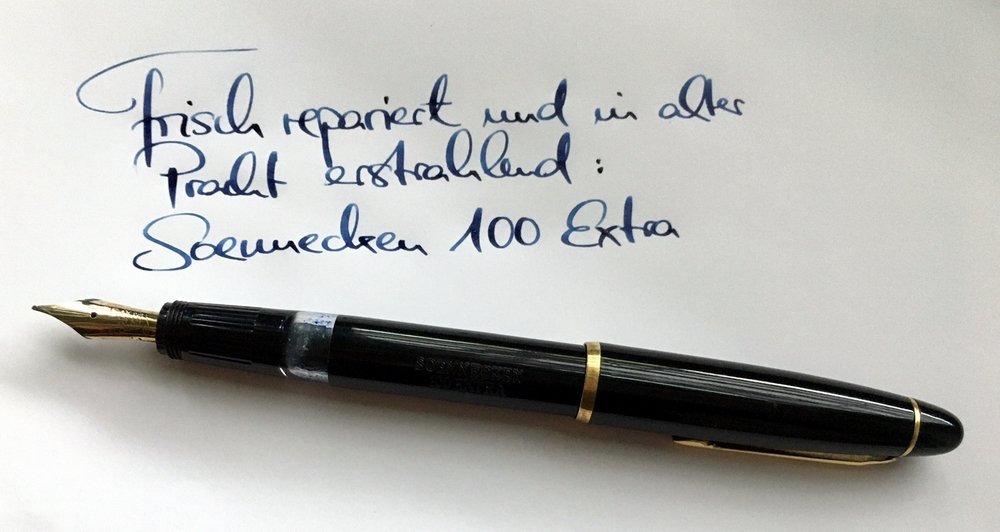 Frisch repariert und in alter
Pracht erstrahlend:
Soennecken 100 Extra
SOENNECKEN